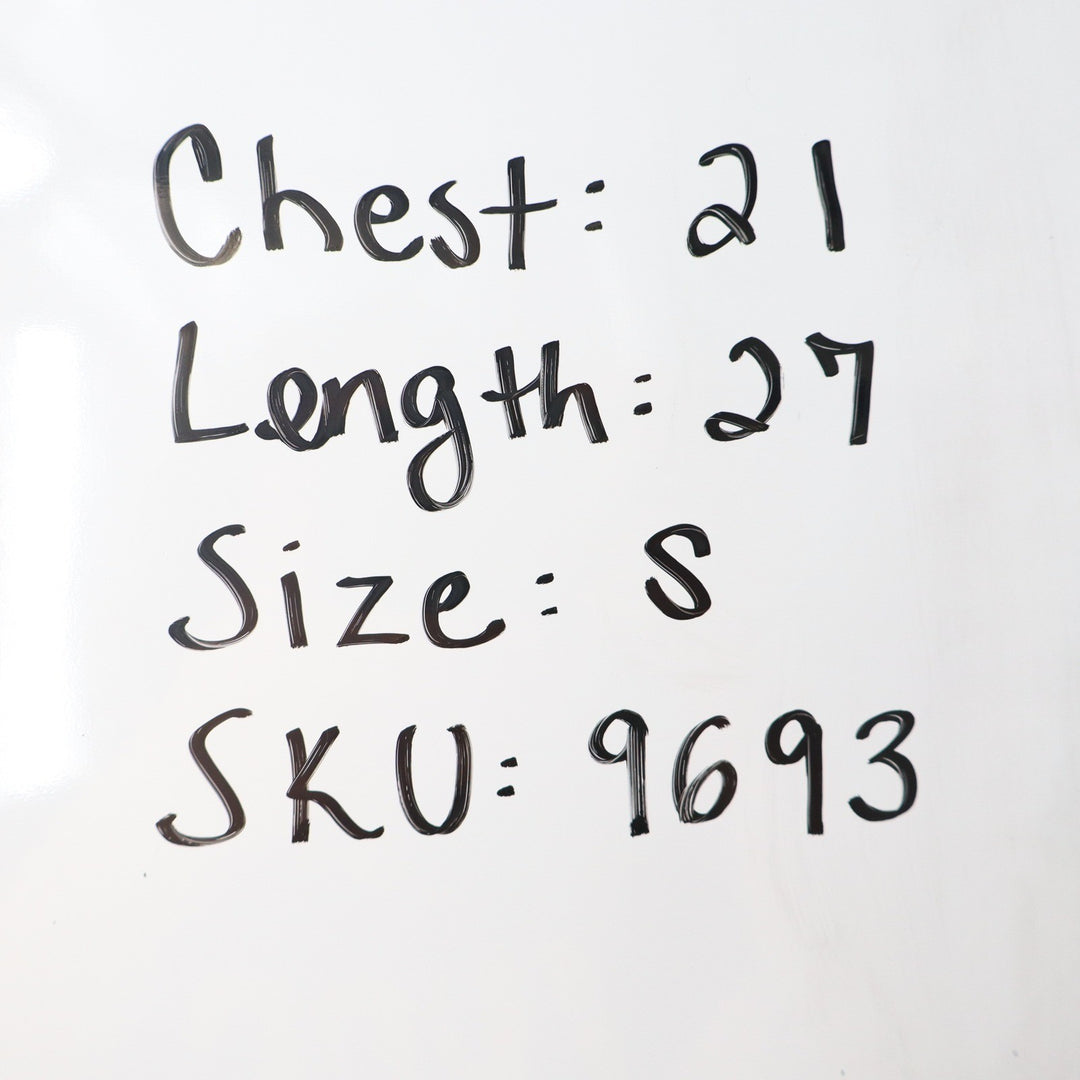 Chest: 21
Length: 27
Size: S
SKU: 9693